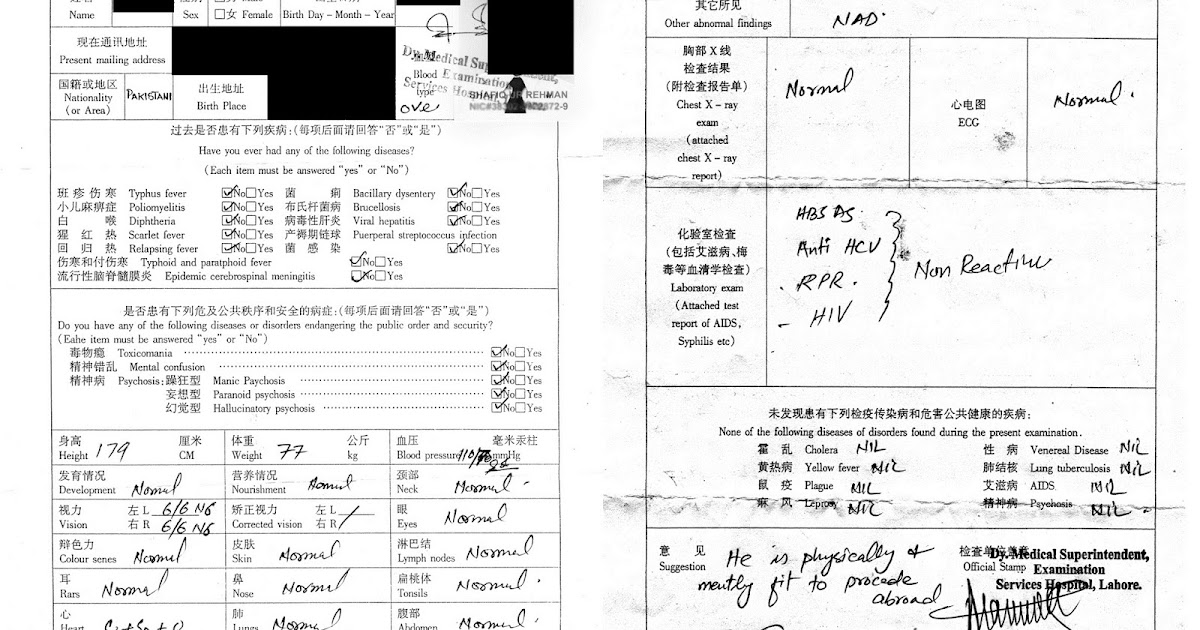 姓名
Name
性别
Sex
□男 Male
□女 Female
出生日期
Birth Day－Month－Year
现在通讯地址
Present mailing address
国籍或地区
Nationality
(or Area)
PAKISTANI
出生地址
Birth Place
血型
Blood
type
Dy. Medical Superintendent,
Examination
Services Hospital
SHAFIQ UR REHMAN
过去是否患有下列疾病:(每项后面请回答“否”或“是”)
Have you ever had any of the following diseases?
(Each item must be answered “yes” or “No”)
班疹伤寒 Typhus fever ☑No□Yes 菌痢 Bacillary dysentery ☑No□Yes
小儿麻痹症 Poliomyelitis ☑No□Yes 布氏杆菌病 Brucellosis ☑No□Yes
白喉 Diphtheria ☑No□Yes 病毒性肝炎 Viral hepatitis ☑No□Yes
猩红热 Scarlet fever ☑No□Yes 产褥期链球 Puerperal streptococcus infection
回归热 Relapsing fever ☑No□Yes 菌感染 ☑No□Yes
伤寒和付伤寒 Typhoid and paratphoid fever ☑No□Yes
流行性脑脊髓膜炎 Epidemic cerebrospinal meningitis ☒No□Yes
是否患有下列危及公共秩序和安全的病症:(每项后面请回答“否”或“是”)
Do you have any of the following diseases or disorders endangering the public order and security?
(Eahe item must be answered “yes” or “No”)
毒物瘾 Toxicomania ☑No□Yes
精神错乱 Mental confusion ☑No□Yes
精神病 Psychosis:躁狂型 Manic Paychosis ☑No□Yes
妄想型 Paranoid psychosis ☑No□Yes
幻觉型 Hallucinatory psychosis ☑No□Yes
身高 厘米 体重 公斤 血压 毫米汞柱
Height 179 CM Weight 77 kg Blood pressure 110/70 mmHg
发育情况 营养情况 颈部
Development Normal Nourishment Normal Neck Normal
视力 左 L 6/6 N6 矫正视力 左 L 眼
Vision 右 R 6/6 N6 Corrected vision 右 R Eyes Normal
辩色力 皮肤 淋巴结
Colour senes Normal Skin Normal Lymph nodes Normal
耳 鼻 扁桃体
Rars Normal Nose Normal Tonsils Normal
心 肺 腹部
Heart Lungs Normal Abdomen Normal
其它所见
Other abnormal findings
NAD
胸部 X 线
检查结果
(附检查报告单)
Chest X－ray
exam
(attached
chest X－ray
report)
Normal
心电图
ECG
Normal.
化验室检查
(包括艾滋病、梅
毒等血清学检查)
Laboratory exam
(Attached test
report of AIDS,
Syphilis etc)
HBS AS
Anti HCV
RPR
HIV
Non Reactive
未发现患有下列检疫传染病和危害公共健康的疾病:
None of the following diseases of disorders found during the present examination.
霍乱 Cholera NIL 性病 Venereal Disease NIL
黄热病 Yellow fever NIL 肺结核 Lung tuberculosis NIL
鼠疫 Plague NIL 艾滋病 AIDS NIL
麻风 Leprosy NIL 精神病 Psychosis NIL
意见
Suggestion
He is physically &
mently fit to procede
abroad
检查单位盖章
Official Stamp
Dy. Medical Superintendent,
Examination
Services Hospital, Lahore.